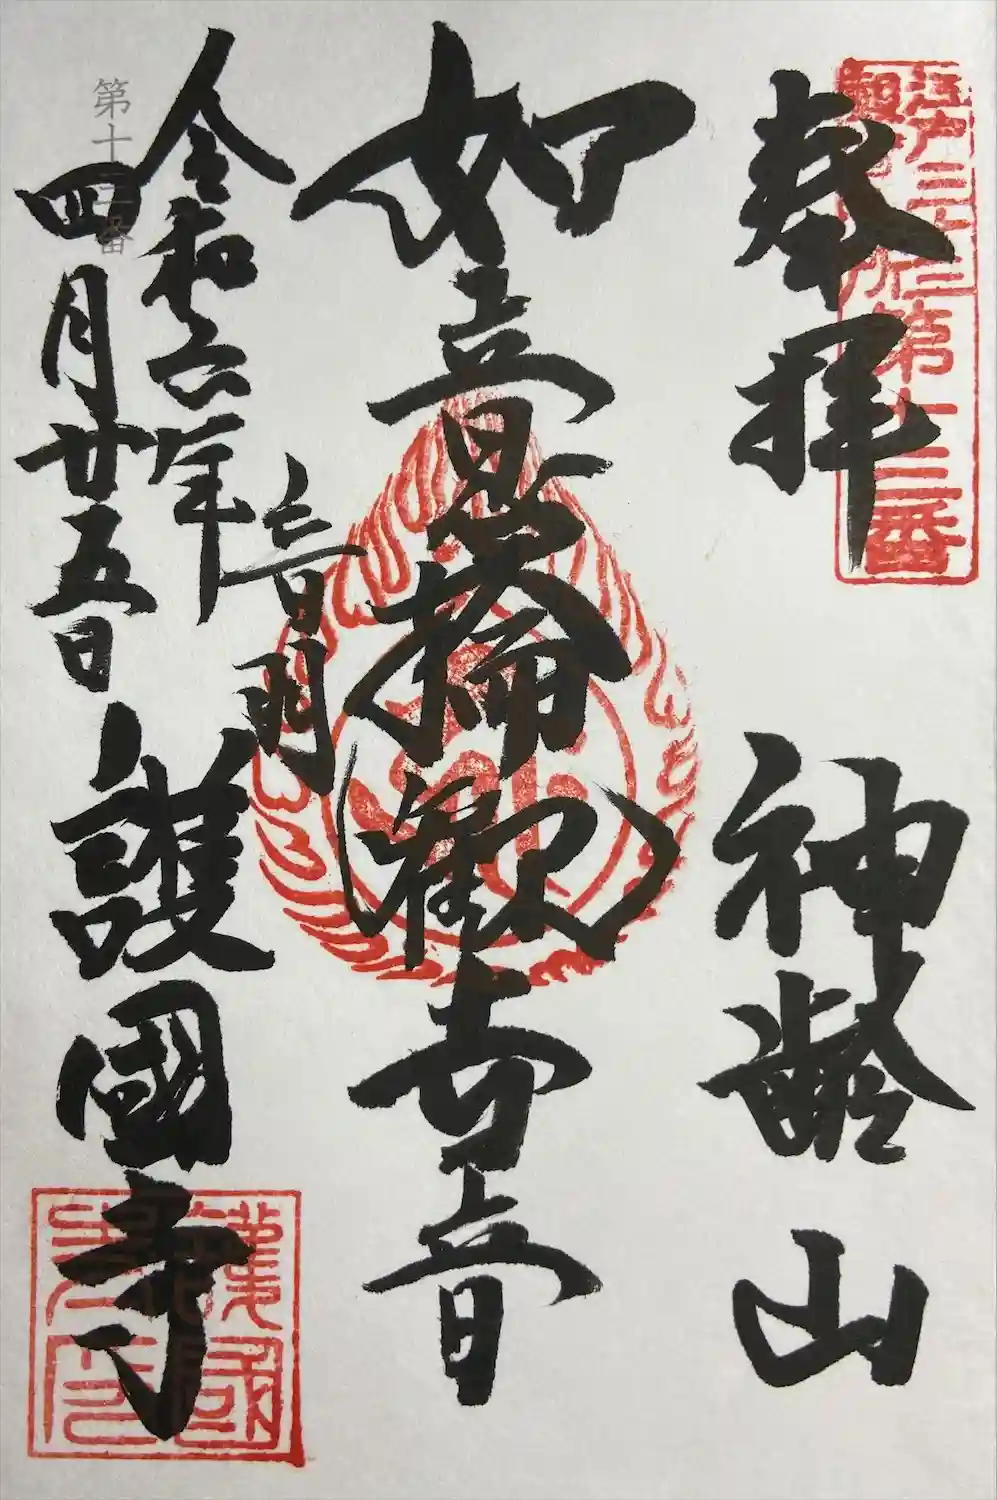 江戸三十三
観音札所第十三番
奉拝 神齢山
如意輪観世音
音羽
令和六年
四月廿五日
護國寺
第十三番